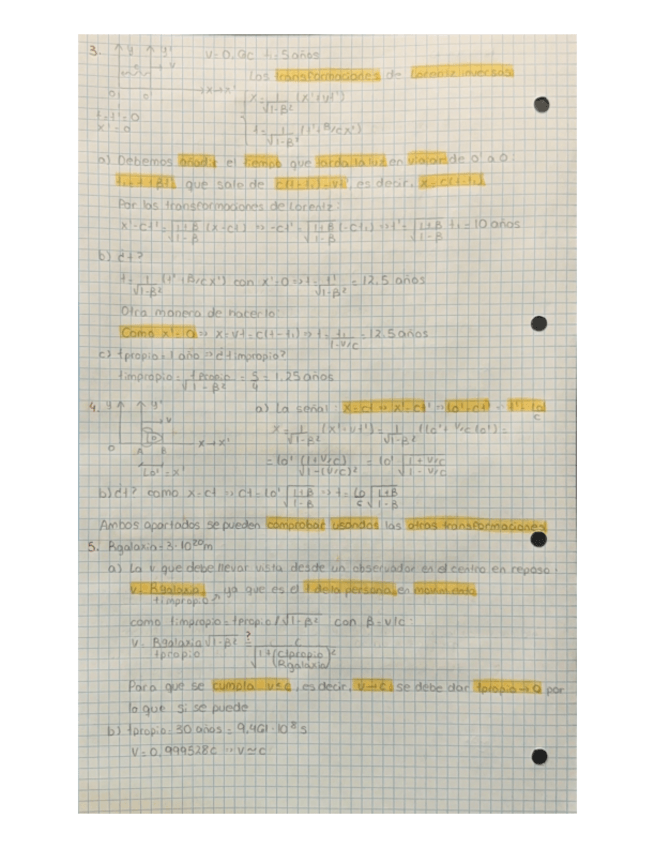 3. y y' v v=0,6c t=5años
Las transformaciones de Lorentz inversas
x→x'
0 0'
t=t'=0
x'=0
x=1/√1-β² (x'+vt')
t=1/√1-β² (t'+β/c x')
a) Debemos añadir el tiempo que tarda la luz en viajar de 0' a 0:
que sale de c(t-t₁)=vt, es decir, x=c(t-t₁)
Por las transformaciones de Lorentz:
x'-ct'=√1+β/√1-β (x-ct) ⇒ -ct'=√1+β/√1-β (-ct₁) ⇒ t'=√1+β/√1-β t₁=10 años
b) ¿t?
t=1/√1-β² (t'+β/c x') con x'=0 ⇒ t=1/√1-β² t'=12.5 años
Otra manera de hacerlo:
Como x'=0 ⇒ x=vt=c(t-t₁) ⇒ t=t₁/1-v/c=12.5 años
c) tpropio=1 año ⇒ ¿timpropio?
timpropio=tpropio/√1-β²=5/4=1.25 años
4. y y' v
0 A B x→x'
L0'=x'
a) La señal: x=ct ⇒ x'=ct' ⇒ l0'=ct' ⇒ t'=l0'/c
x=1/√1-β² (x'+vt')=1/√1-β² (l0'+v/c l0')=
=l0' (1+v/c)/√1-(v/c)²=l0' √1+v/c/√1-v/c
b) ¿t? como x=ct ⇒ ct=l0' √1+β/√1-β ⇒ t=l0'/c √1+β/√1-β
Ambos apartados se pueden comprobar usando las otras transformaciones
5. Rgalaxia=3·10²⁰m
a) La v que debe llevar vista desde un observador en el centro en reposo:
v=Rgalaxia/timpropio, ya que es el t de la persona en movimiento
como timpropio=tpropio/√1-β² con β=v/c:
v=Rgalaxia √1-β²/tpropio ?= c/√1+(c tpropio/Rgalaxia)²
Para que se cumpla v≤c, es decir, v→c, se debe dar tpropio→0 por
lo que sí se puede
b) tpropio=30 años=9,461·10⁸s
v=0,999528c ⇒ v≃c